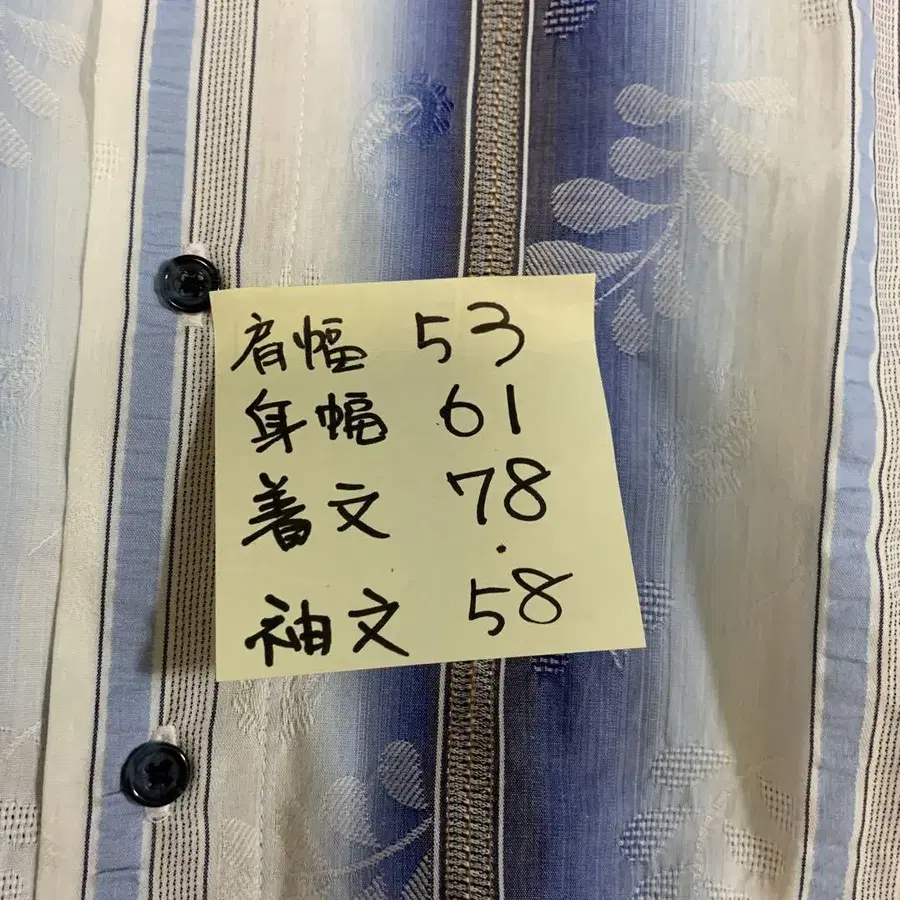 肩幅 53
身幅 61
着文 78
袖文 58